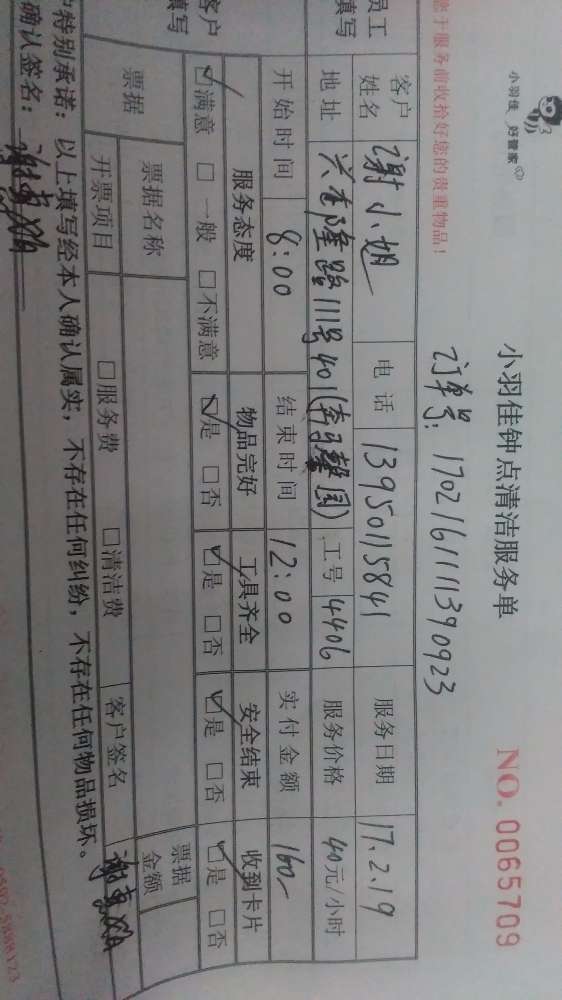 小羽佳 好管家
小羽佳钟点清洁服务单
NO. 0065709
您于服务前收拾好您的贵重物品!
订单号: 170216111390923
员工填写
客户姓名 谢小姐 电话 13950115841 服务日期 17.2.19
地址 兴隆路111号401 工号 4406 服务价格 40元/小时
开始时间 8:00 结束时间 12:00 实付金额 160-
客户填写
服务态度 物品完好 工具齐全 安全结束 收到卡片
☑满意 □一般 □不满意 ☑是 □否 ☑是 □否 ☑是 □否 ☑是 □否
票据 票据名称 票据金额
开票项目 □服务费 □清洁费 客户签名
特别承诺: 以上填写经本人确认属实, 不存在任何纠纷, 不存在任何物品损坏。
确认签名: